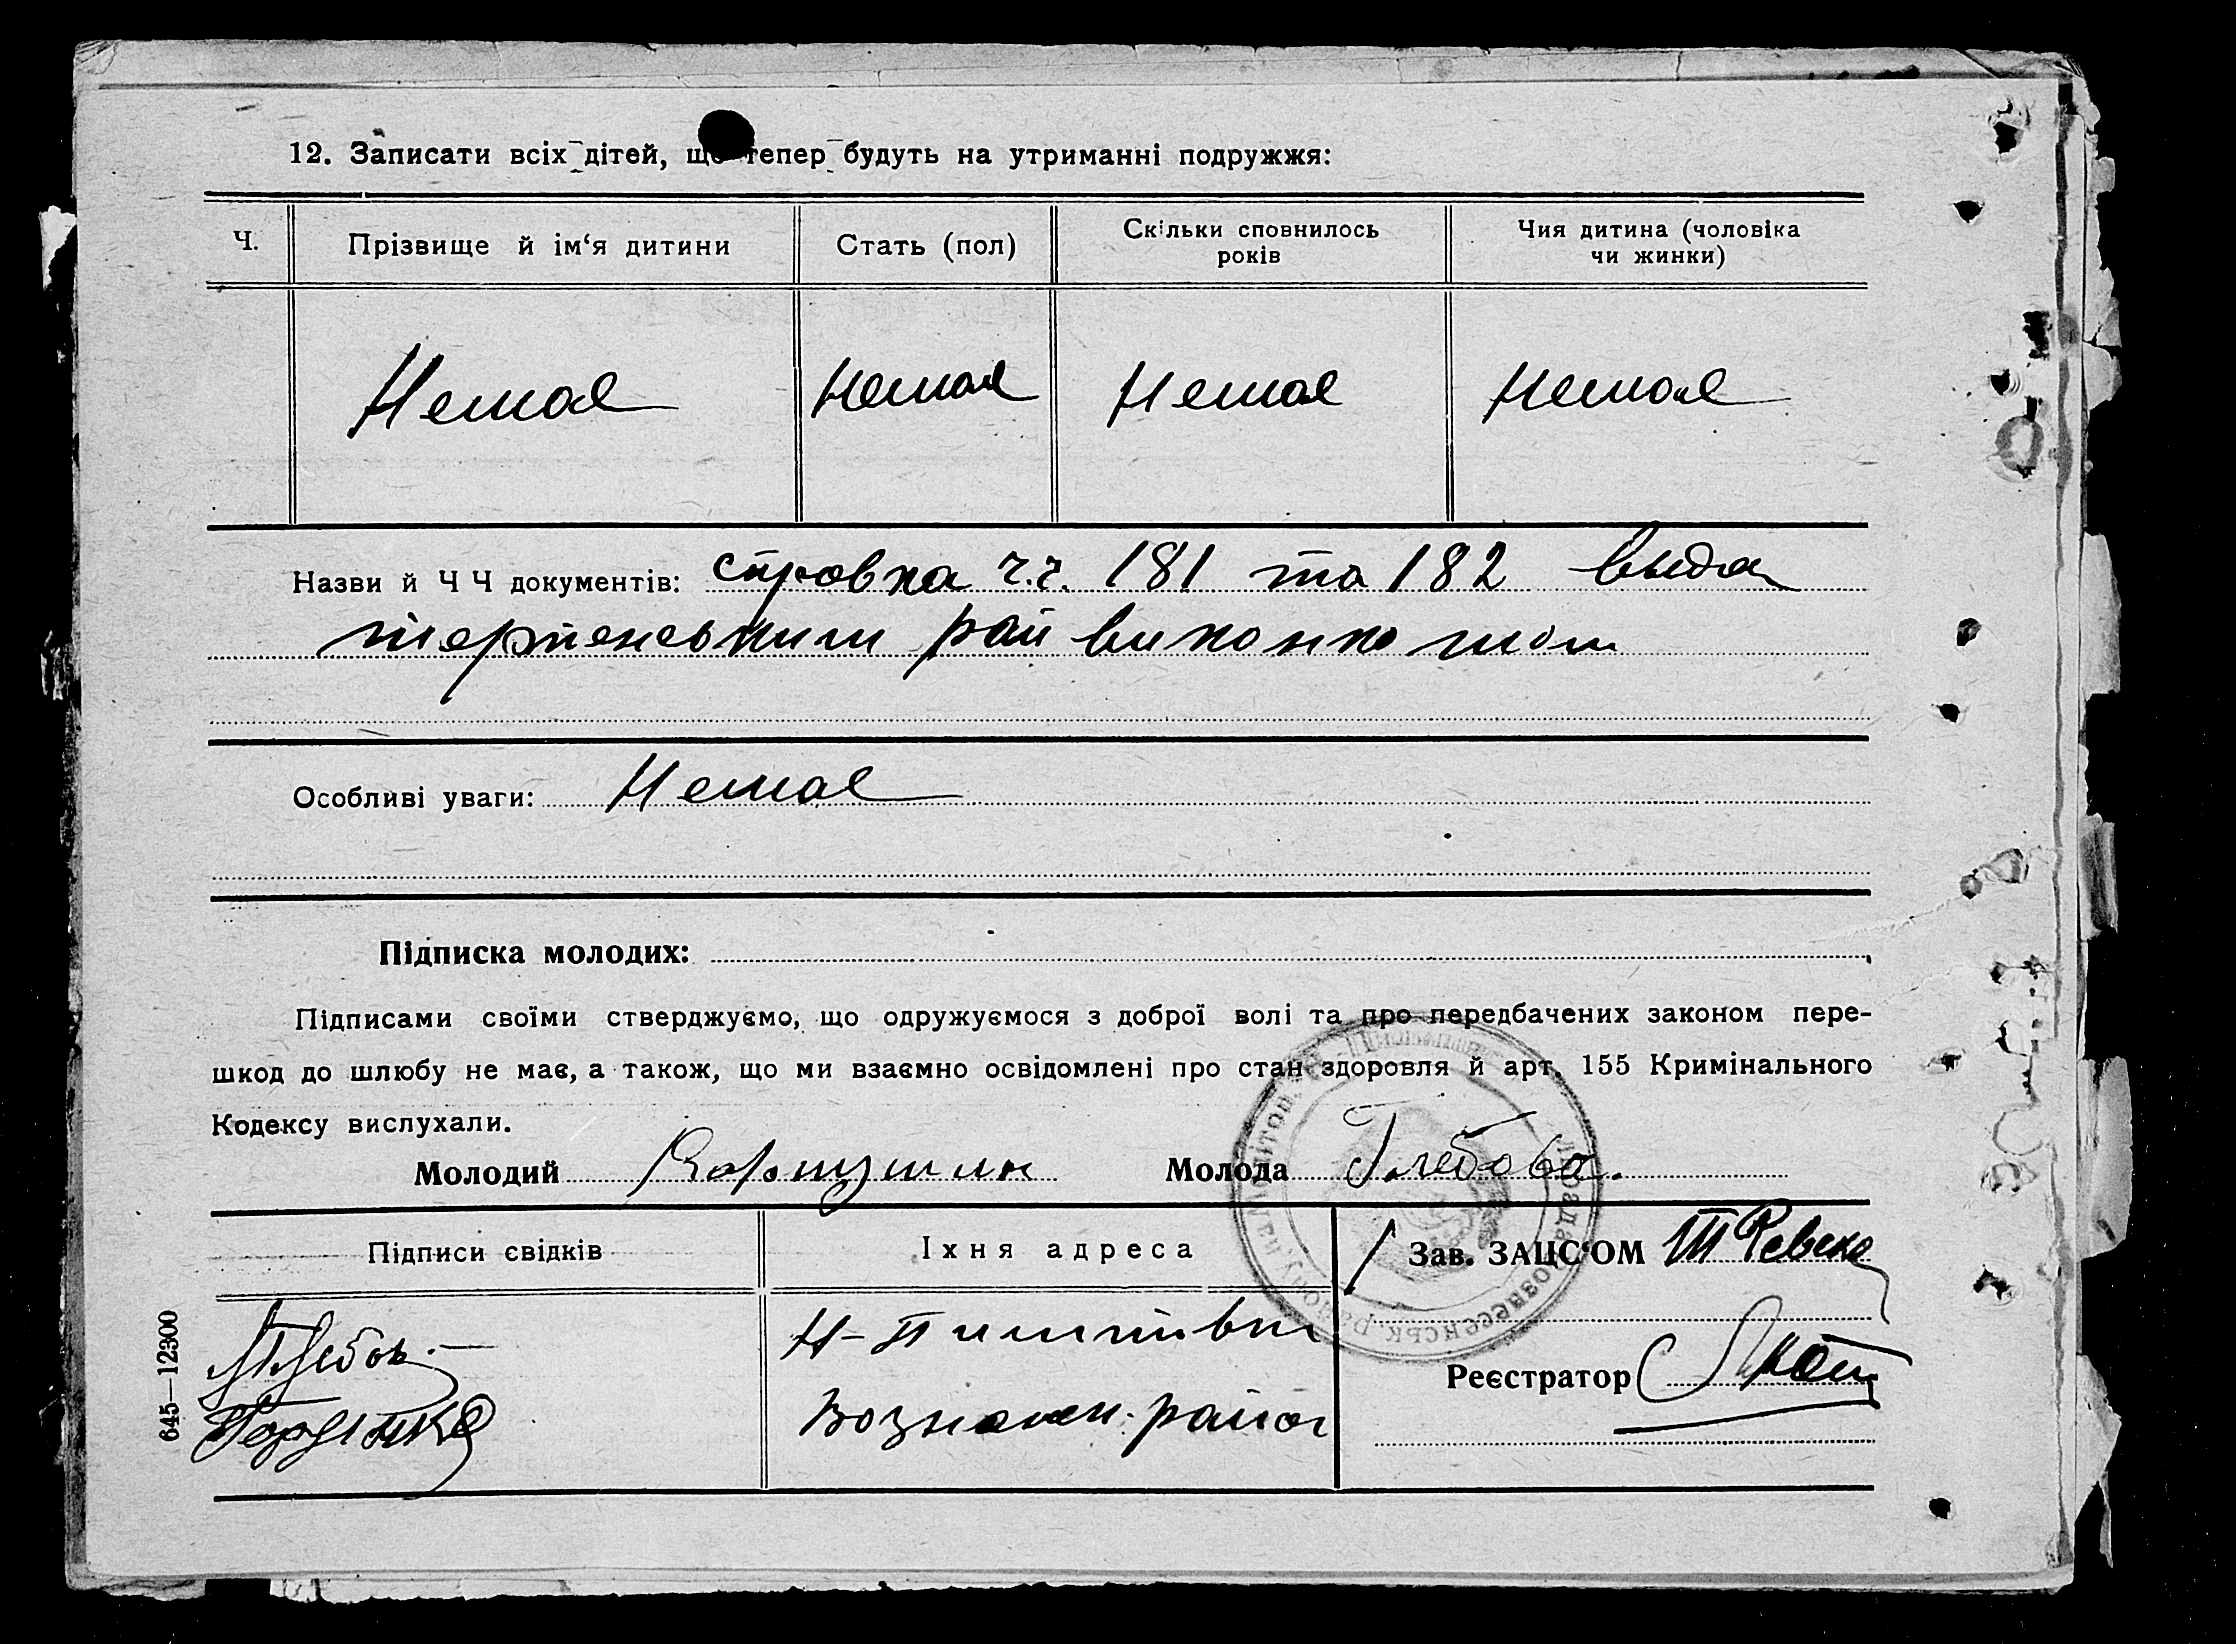 12. Записати всіх дітей, що тепер будуть на утриманні подружжя:
Ч. Прізвище й ім‘я дитини Стать (пол) Скільки сповнилось років Чия дитина (чоловіка чи жинки)
Немає Немає Немає Немає
Назви й Ч Ч документів: справка ч.ч. 181 та 182 выда
терпенським рай виконкомом
Особливі уваги: Немає
Підписка молодих:
Підписами своїми стверджуємо, що одружуємося з доброї волі та про передбачених законом пере-
шкод до шлюбу не має, а також, що ми взаємно освідомлені про стан здоровля й арт. 155 Кримінального
Кодексу вислухали.
Молодий Молода Глебова.
Підписи свідків Їхня адреса Зав. ЗАЦС‘ОМ
Н-
район
Реєстратор
645—12300